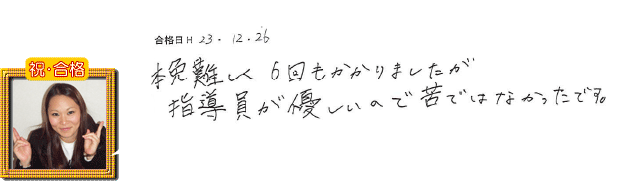 合格日H 23. 12. 26
祝・合格
本免難しく6回もかかりましたが
指導員が優しいので苦ではなかったです。